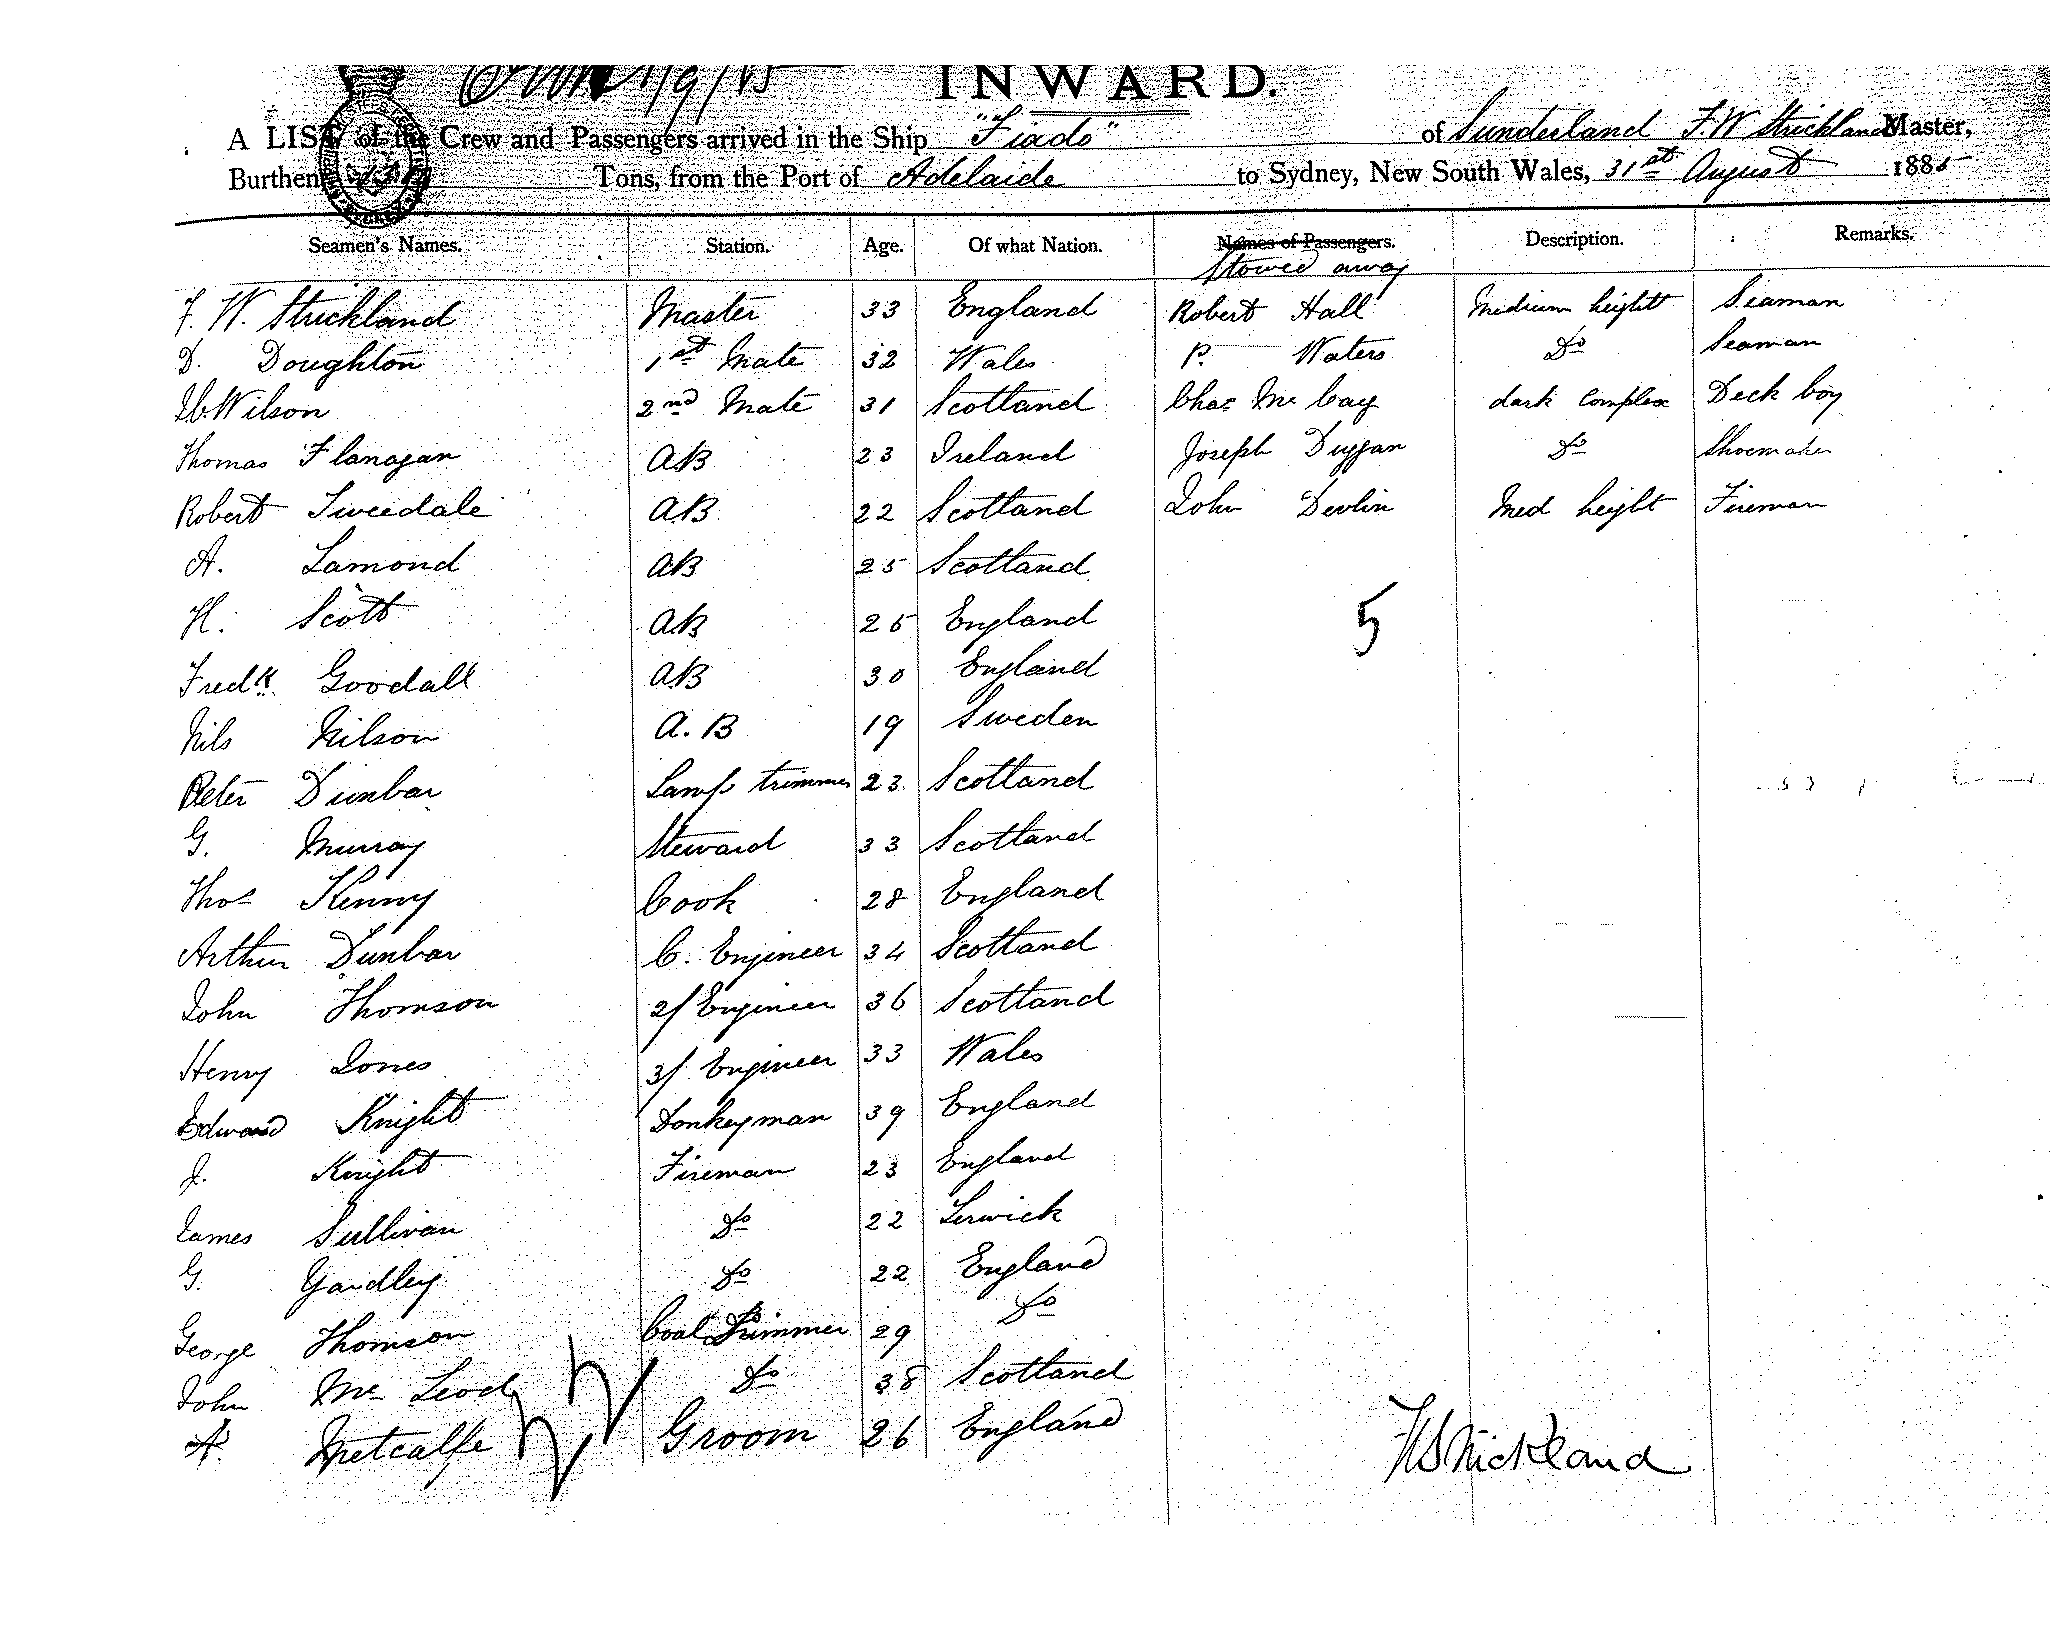 1/9/85 INWARD.
A LIST of the Crew and Passengers arrived in the Ship "Fiado" of Sunderland F. W Strickland Master,
Burthen Tons, from the Port of Adelaide to Sydney, New South Wales, 31st August 1885
Seamen's Names. Station. Age. Of what Nation. Names of Passengers. Description. Remarks.
Stowed away
F. W. Strickland Master 33 England Robert Hall Medium height Seaman
D. Doughton 1st Mate 32 Wales P. Waters Do Seaman
Wilson 2nd Mate 31 Scotland Chas Mc Cay dark complex Deck boy
Thomas Flanagan AB 23 Ireland Joseph Duggan Do Shoemaker
Robert Tweedale AB 22 Scotland John Devlin Med height Fireman
A. Lamond AB 25 Scotland
H. Scott AB 25 England 5
Fredk Goodall AB 30 England
Nils Nilson A. B 19 Sweden
Peter Dunbar Lamp trimmer 23 Scotland
G. Murray Steward 33 Scotland
Thos Kenny Cook 28 England
Arthur Dunbar C. Engineer 34 Scotland
John Thomson 2/ Engineer 36 Scotland
Henry Jones 3/ Engineer 33 Wales
Edward Knight Donkeyman 39 England
J. Knight Fireman 23 England
James Sullivan Do 22 Lerwick
G. Yardley Do 22 England
George Thomson Coal Trimmer 29 Do
John Mc Leod Do 38 Scotland
A. Metcalfe Groom 26 England
FWStrickland